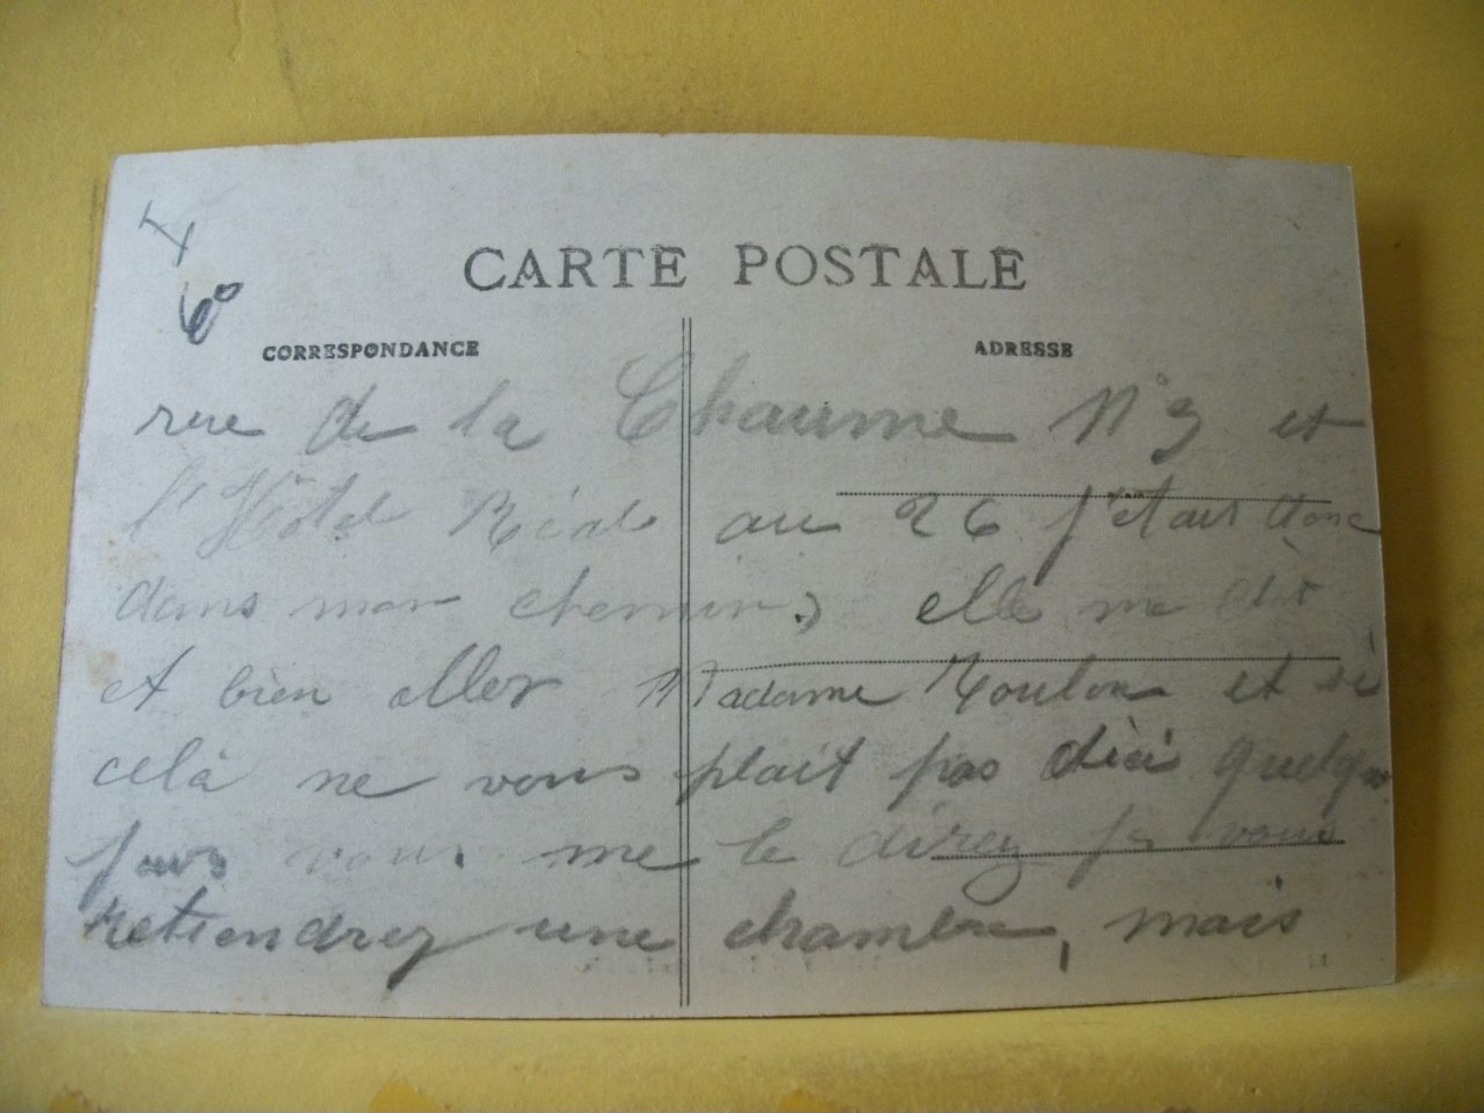 6°
CARTE POSTALE
CORRESPONDANCE
ADRESSE
rue de la Chaume N° 3 et
l'Hôtel au 26 j'étais donc
dans mon chemin, elle me dit
et bien aller Madame et si
celà ne vous plait pas dici quelque
jours vous me le direz je vous
retiendrez une chambre, mais